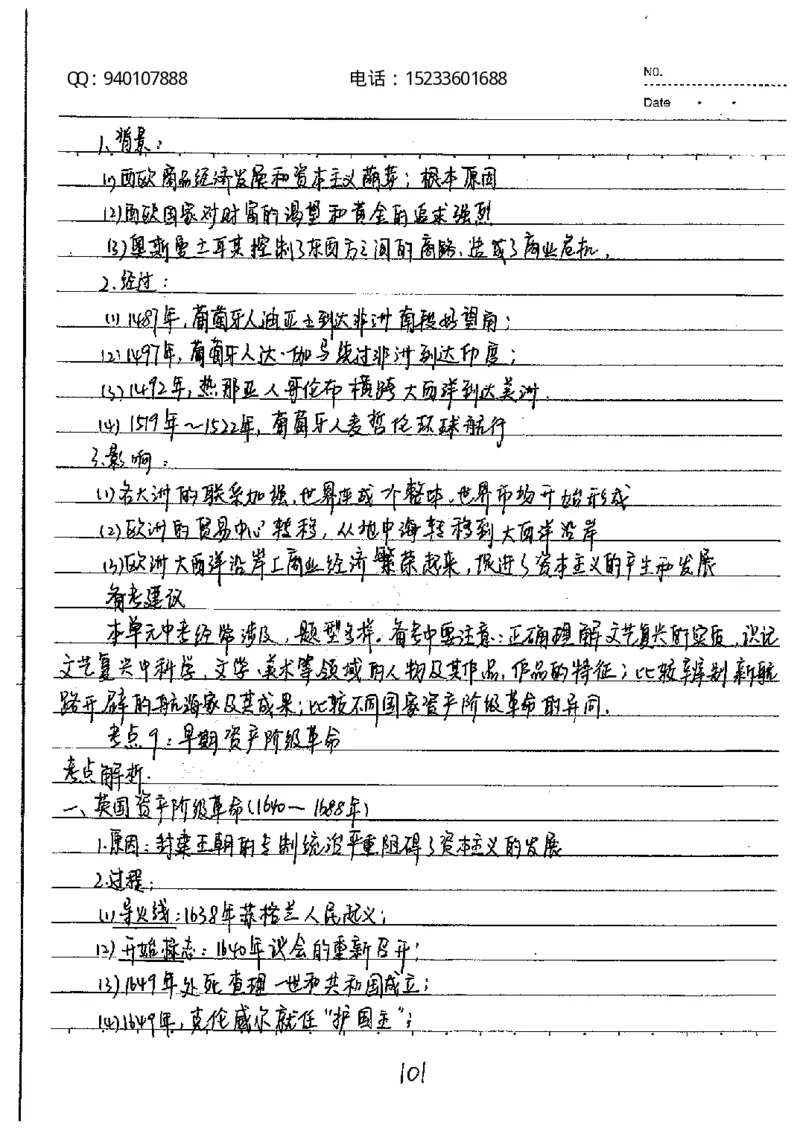 QQ：940107888 电话：15233601688 No.
Date
1、背景：
(1)西欧商品经济发展和资本主义萌芽；根本原因
(2)西欧国家对财富的渴望和黄金的追求强烈
(3)奥斯曼土耳其控制了东西方之间的商路、造成了商业危机。
2.经过：
(1)1487年，葡萄牙人迪亚士到达非洲南段好望角；
(2)1497年，葡萄牙人达·伽马绕过非洲到达印度；
(3)1492年，热那亚人哥伦布横跨大西洋到达美洲.
(4)1519年～1522年，葡萄牙人麦哲伦环球航行
3.影响：
(1)各大洲的联系加强、世界连成一个整体、世界市场开始形成
(2)欧洲的贸易中心转移，从地中海转移到大西洋沿岸
(3)欧洲大西洋沿岸工商业经济繁荣起来，促进了资本主义的产生和发展
备考建议
本单元中考经常涉及，题型多样。备考中要注意：正确理解文艺复兴的实质，识记
文艺复兴中科学、文学、美术等领域的人物及其作品，作品的特征；比较辨别新航
路开辟的航海家及其成果；比较不同国家资产阶级革命的异同。
考点9：早期资产阶级革命
考点解析.
一、英国资产阶级革命(1640－1688年)
1.原因：封建王朝的专制统治严重阻碍了资本主义的发展
2.过程；
(1)导火线：1638年苏格兰人民起义；
(2)开始标志：1640年议会的重新召开；
(3)1649年处死查理一世和共和国成立；
(4)1649年，克伦威尔就任“护国主”；
101